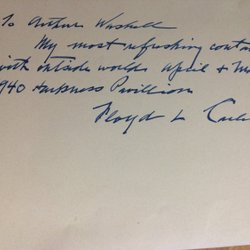 To Arthur
My most refreshing conta
with outside world April & M
940 Harkness Pavillion
Floyd L